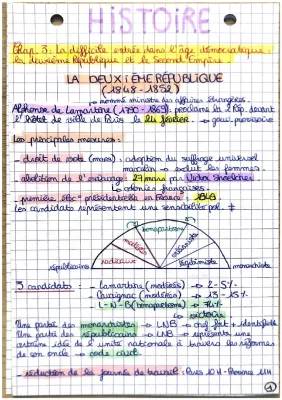 HISTOIRE
Chap. 3: La difficile entrée dans l'âge démocratique :
la deuxième République et le Second Empire.
LA DEUXIEME REPUBLIQUE
(1848-1852)
→ nommé ministre des affaires étrangères.
Alphonse de Lamartine (1790-1869): proclame la 2 Rép. devant
l'Hôtel de ville de Paris le 24 février. → gouv. provisoire
Les principales mesures :
- droit de vote (mars) : adoption du suffrage universel
masculin → exclut les femmes.
- abolition de l'esclavage : 27 mars par Victor Schoelcher
→ colonies françaises.
- première élec° présidentielle en France : 1848
Les candidats représentent une sensibilité pol. ≠
bonapartisme
modérés
orléaniste
radicaux
légitimiste
républicains
monarchistes
3 candidats : - Lamartine (modérés) → 2-5%
- Cavaignac (modérés) → 13-15%
- L-N-B (bonapartisme) → 74%
↳ victoire
Une partie des monarchistes → LNB → chef fort + identifiable
Une partie des républicains → LNB → représente une
certaine idée de l'unité nationale à travers les réformes
de son oncle → code civil
- réduction de la journée de travail : Paris 10H - Province 11H
1